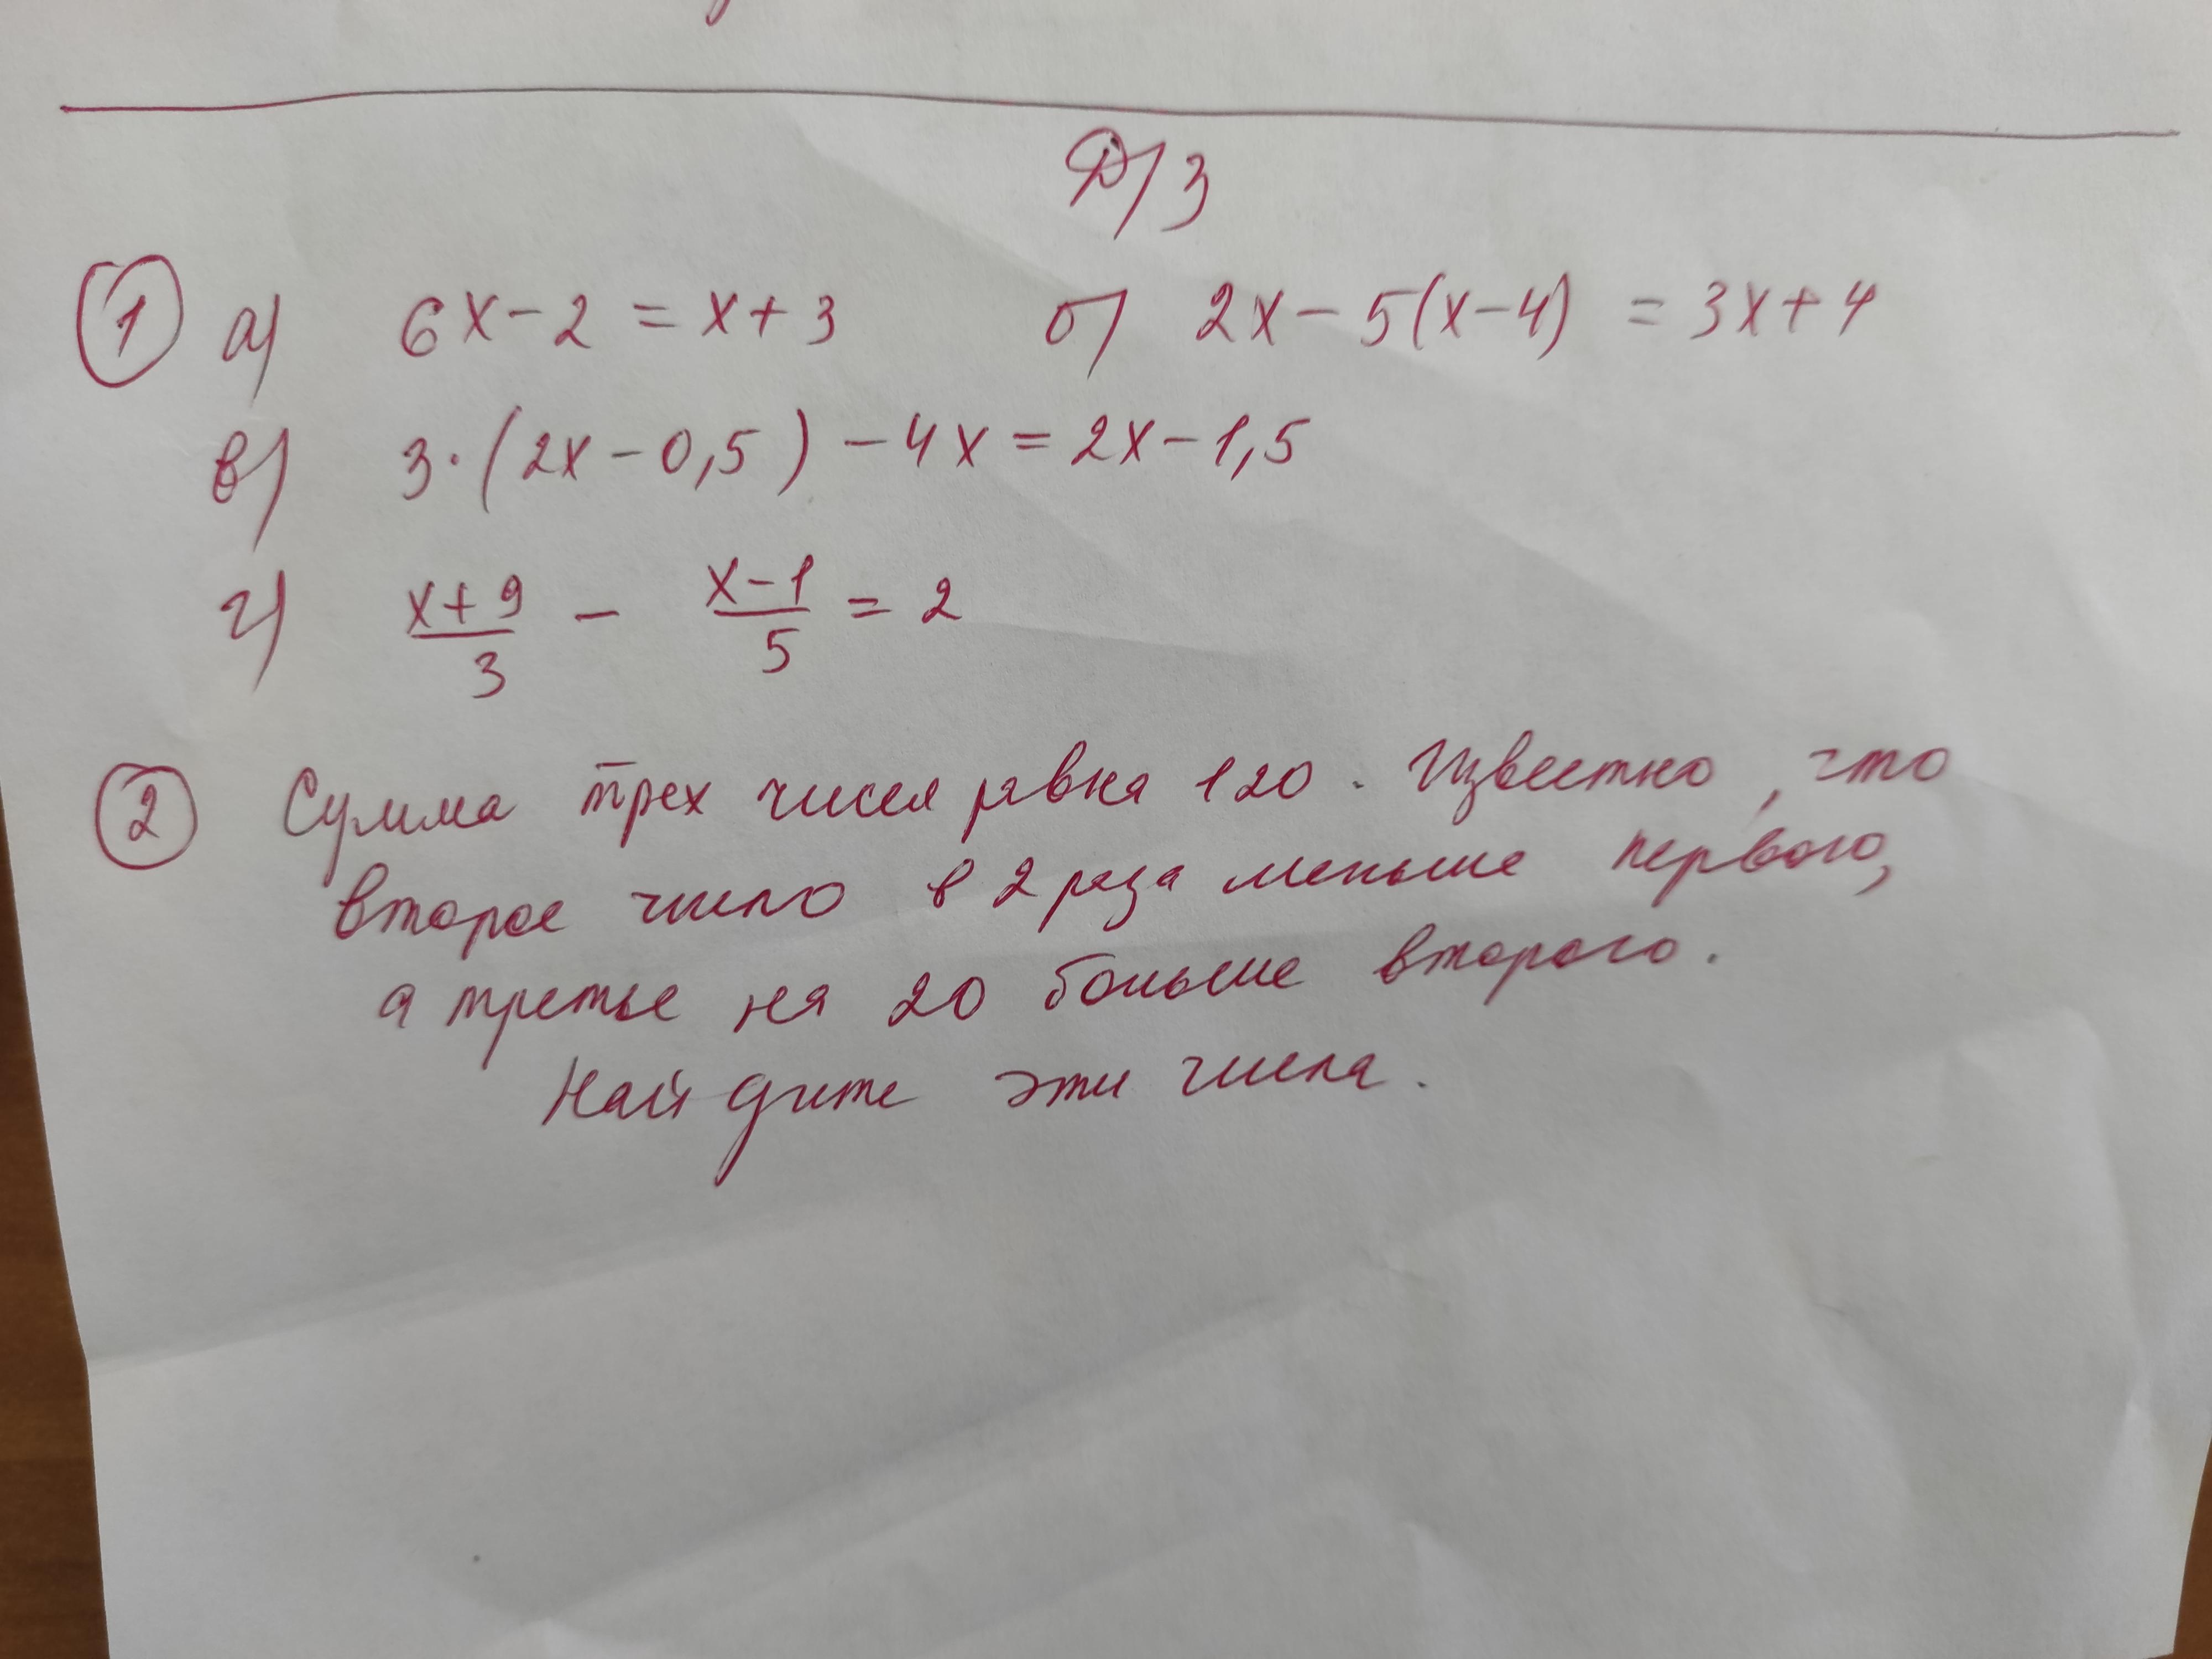 Д/З
① а) 6x - 2 = x + 3 б) 2x - 5(x - 4) = 3x + 4
в) 3·(2x - 0,5) - 4x = 2x - 1,5
г) (x + 9)/3 - (x - 1)/5 = 2
② Сумма трех чисел равна 120. Известно, что
второе число в 2 раза меньше первого,
а третье на 20 больше второго.
Найдите эти числа.